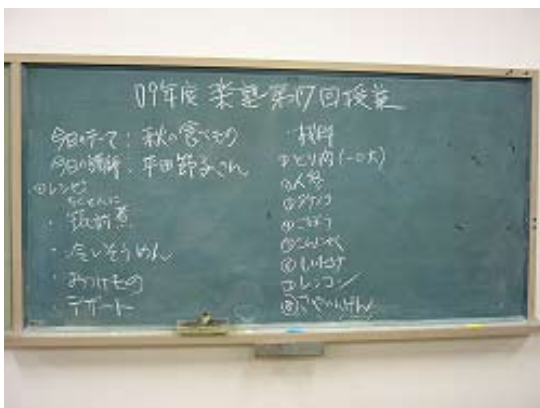 09年度 楽塾 第17回授業
今日のテーマ: 秋の食べもの
今日の講師: 平田節子さん
◎レシピ
ちくぜんに
・筑前煮
・冷しそうめん
・おつけもの
・デザート
・材料
①とり肉(一口大)
②人参
③タケノコ
④ごぼう
⑤こんにゃく
⑥しいたけ
⑦レンコン
⑧さやいんげん